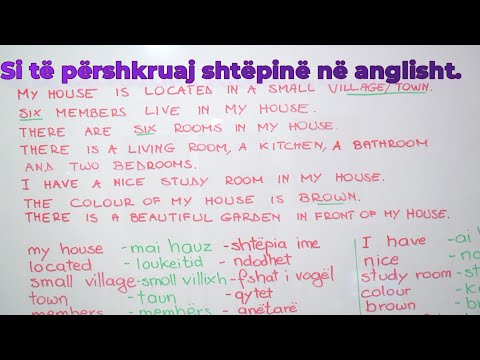 Si të përshkruaj shtëpinë në anglisht.
MY HOUSE IS LOCATED IN A SMALL VILLAGE/TOWN.
SIX MEMBERS LIVE IN MY HOUSE.
THERE ARE SIX ROOMS IN MY HOUSE.
THERE IS A LIVING ROOM, A KITCHEN, A BATHROOM
AND TWO BEDROOMS.
I HAVE A NICE STUDY ROOM IN MY HOUSE.
THE COLOUR OF MY HOUSE IS BROWN.
THERE IS A BEAUTIFUL GARDEN IN FRONT OF MY HOUSE.
my house - mai hauz - shtëpia ime
located - loukeitid - ndodhet
small village - smoll villixh - fshat i vogël
town - taun - qytet
members - membërs - anëtarë
I have - ai
nice - na
study room - st
colour - k
brown -